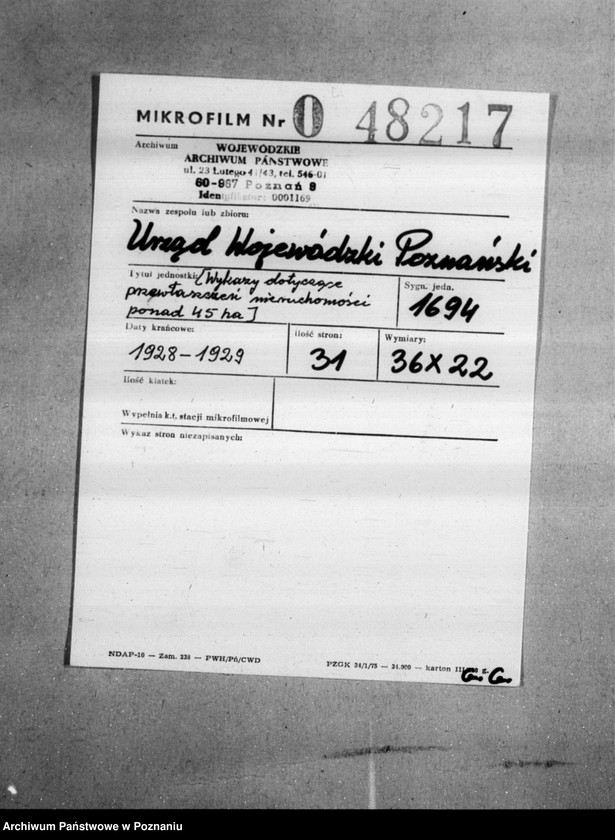 MIKROFILM Nr O 48217
Archiwum
WOJEWÓDZKIE
ARCHIWUM PAŃSTWOWE
ul. 23 Lutego 41/43, tel. 546-01
60-967 Poznań 9
Identyfikator: 0001169
Nazwa zespołu lub zbioru:
Urząd Wojewódzki Poznański
Tytuł jednostki: [Wykazy dotyczące
przewłaszczeń nieruchomości
ponad 45 ha]
Sygn. jedn.
1694
Daty krańcowe:
1928-1929
Ilość stron:
31
Wymiary:
36X22
Ilość klatek:
Wypełnia k.t. stacji mikrofilmowej
Wykaz stron niezapisanych:
NDAP-10 — Zam. 238 — PWH/Pń/CWD
PZGK 24/1/75 — 24.000 — karton III g.
Archiwum Państwowe w Poznaniu